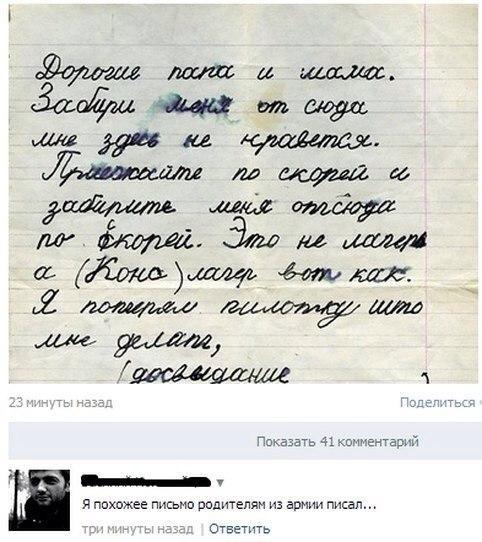 Дорогие папа и мама.
Забири меня от сюда
мне здесь не нравется.
Приежайте по скорей и
забирите меня отсюда
по скорей. Это не лагерь
а (Конс) лагер вот как.
Я потерял пилотку што
мне делать,
(досвидание
23 минуты назад
Поделиться
Показать 41 комментарий
Я похожее письмо родителям из армии писал...
три минуты назад | Ответить